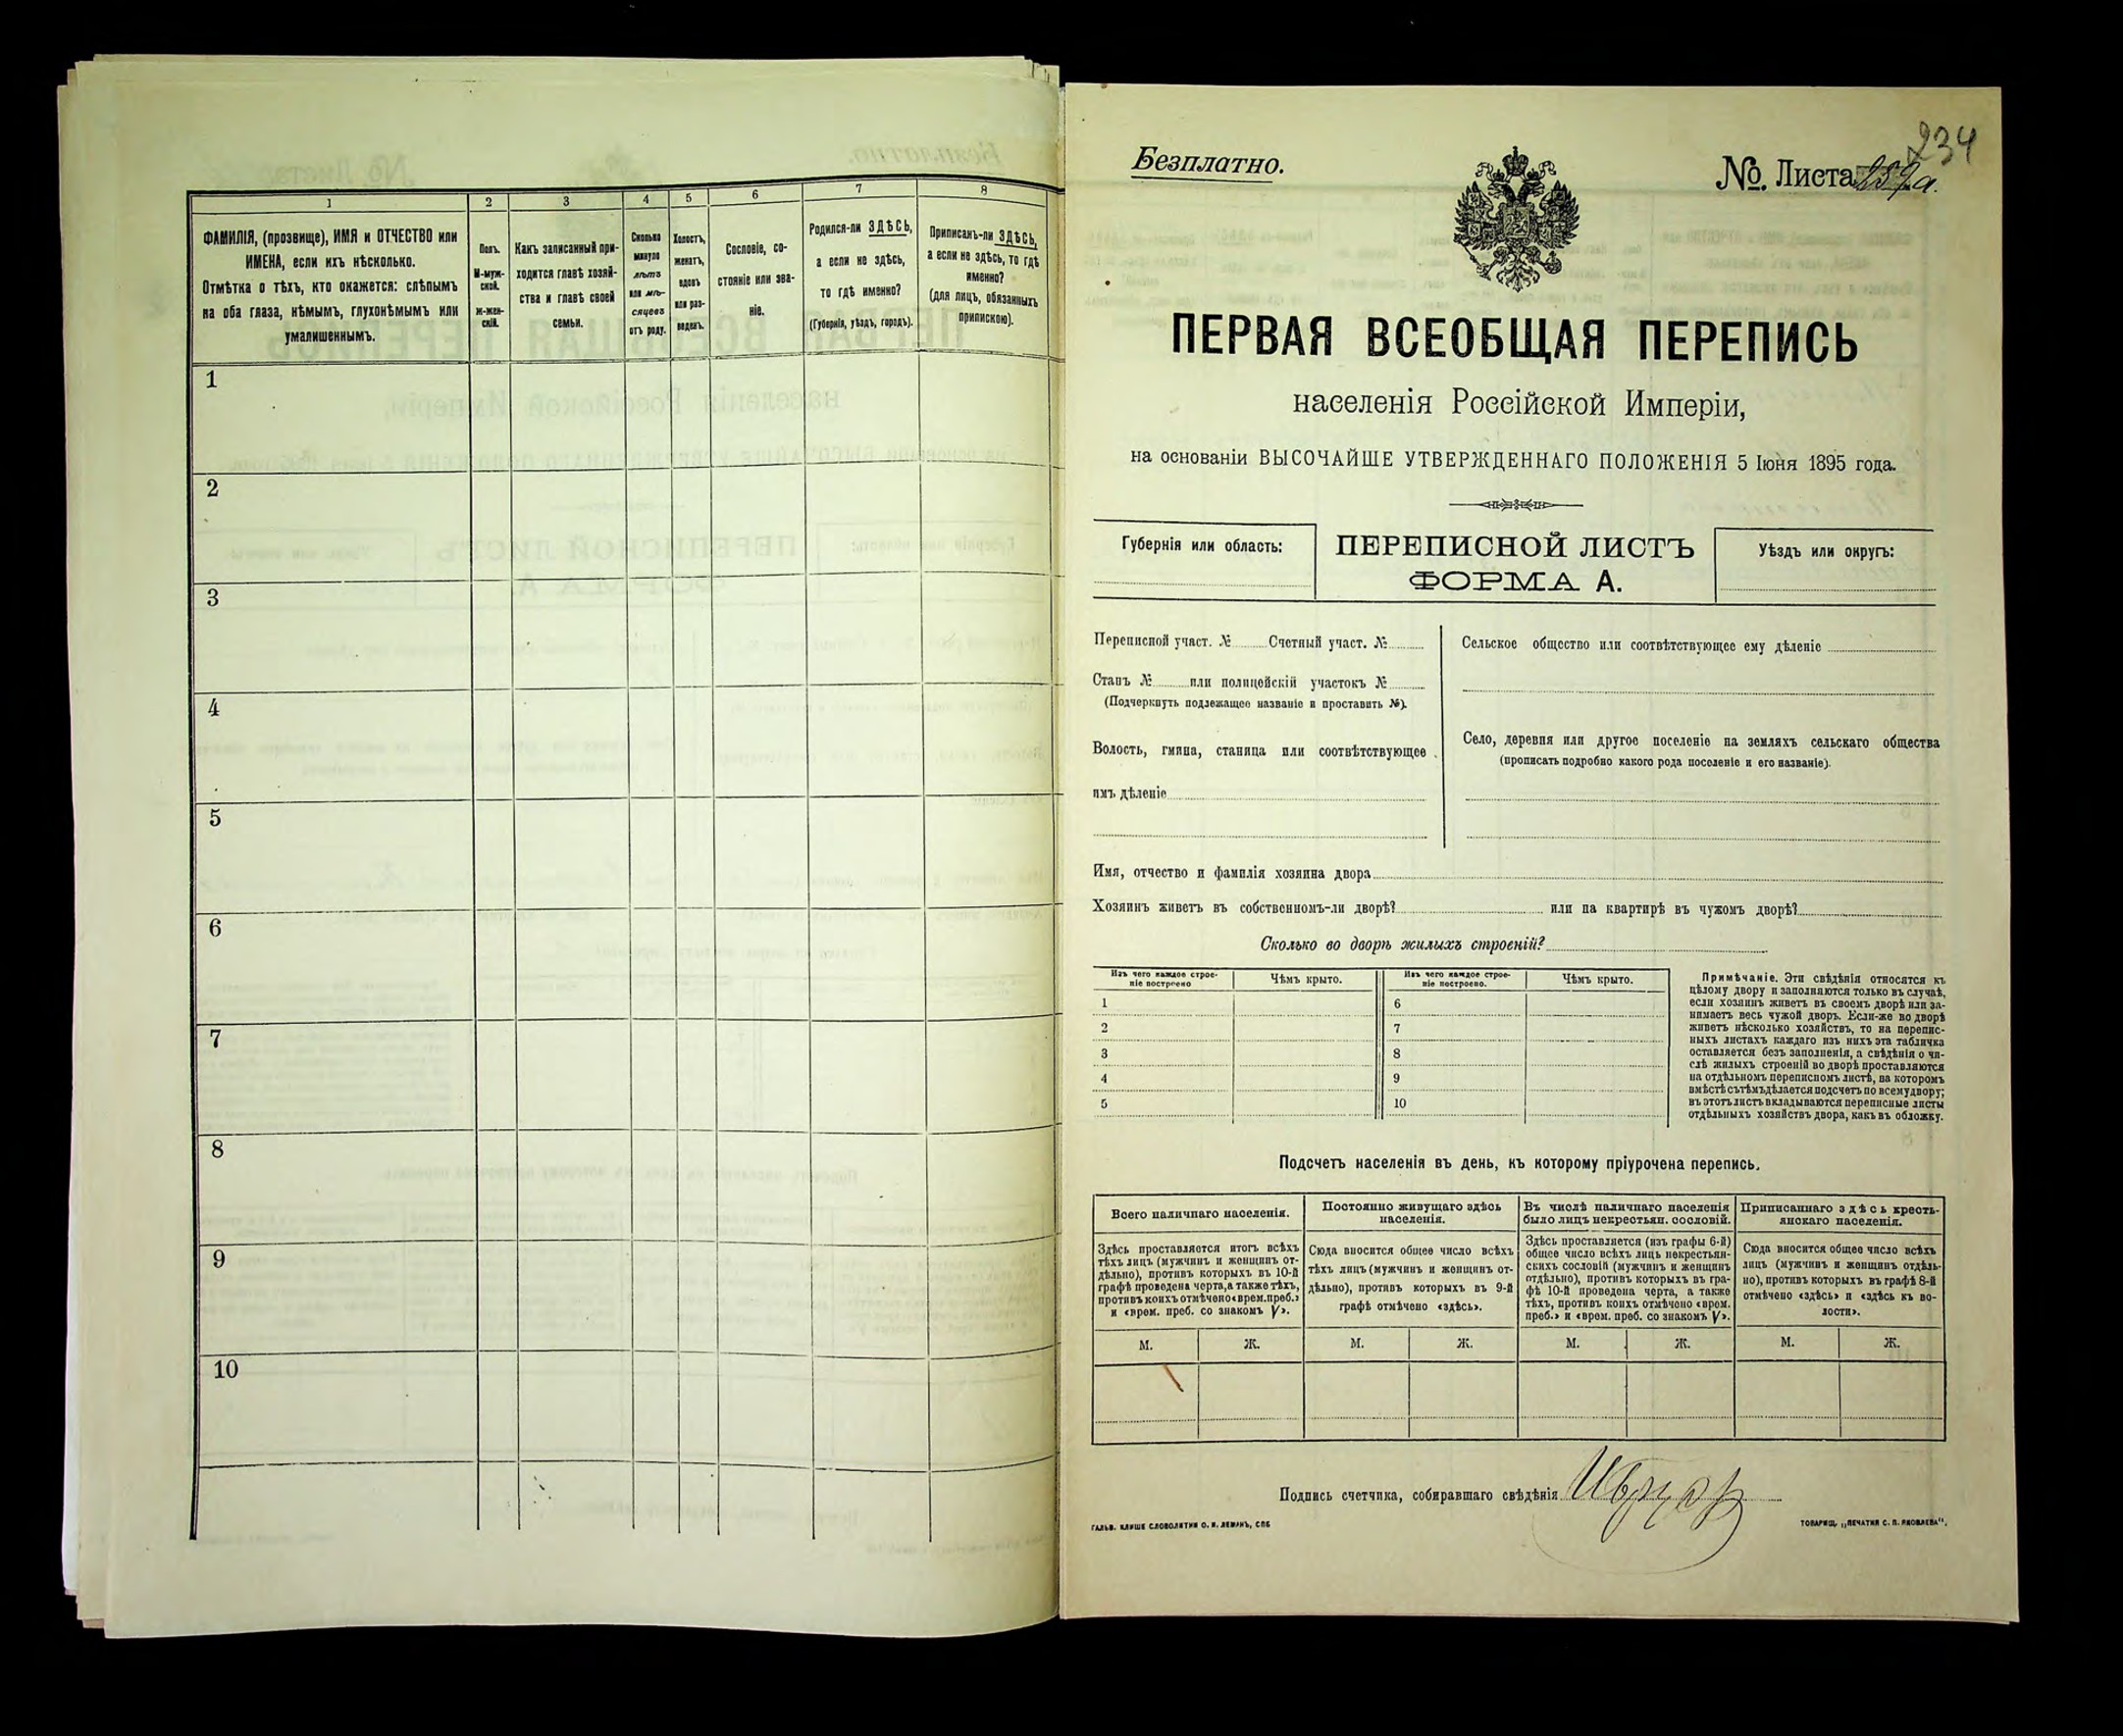 1
2
3
4
5
6
7
8
ФАМИЛІЯ, (прозвище), ИМЯ и ОТЧЕСТВО или
ИМЕНА, если ихъ нѣсколько.
Отмѣтка о тѣхъ, кто окажется: слѣпымъ
на оба глаза, нѣмымъ, глухонѣмымъ или
умалишеннымъ.
Полъ.
М-муж-
ской.
ж-жен-
скій.
Какъ записанный при-
ходится главѣ хозяй-
ства и главѣ своей
семьи.
Сколько
минуло
лѣтъ
или мѣ-
сяцевъ
отъ роду.
Холостъ,
женатъ,
вдовъ
или раз-
веденъ.
Сословіе, со-
стояніе или зва-
ніе.
Родился-ли ЗДѢСЬ,
а если не здѣсь,
то гдѣ именно?
(Губернія, уѣздъ, городъ).
Приписанъ-ли ЗДѢСЬ,
а если не здѣсь, то гдѣ
именно?
(для лицъ, обязанныхъ
припискою).
1
2
3
4
5
6
7
8
9
10
234
Безплатно.
№. Листа
ПЕРВАЯ ВСЕОБЩАЯ ПЕРЕПИСЬ
населенія Россійской Имперіи,
на основаніи ВЫСОЧАЙШЕ УТВЕРЖДЕННАГО ПОЛОЖЕНІЯ 5 Іюня 1895 года.
Губернія или область:
ПЕРЕПИСНОЙ ЛИСТЪ
ФОРМА А.
Уѣздъ или округъ:
Переписной участ. № Счетный участ. №
Станъ № или полицейскій участокъ №
(Подчеркнуть подлежащее названіе и проставить №).
Волость, гмина, станица или соотвѣтствующее
имъ дѣленіе
Сельское общество или соотвѣтствующее ему дѣленіе
Село, деревня или другое поселеніе на земляхъ сельскаго общества
(прописать подробно какого рода поселеніе и его названіе).
Имя, отчество и фамилія хозяина двора
Хозяинъ живетъ въ собственномъ-ли дворѣ? или на квартирѣ въ чужомъ дворѣ?
Сколько во дворѣ жилыхъ строеній?
Изъ чего каждое строе-
ніе построено
Чѣмъ крыто.
Изъ чего каждое строе-
ніе построено.
Чѣмъ крыто.
1
2
3
4
5
6
7
8
9
10
Примѣчаніе. Эти свѣдѣнія относятся къ
цѣлому двору и заполняются только въ случаѣ,
если хозяинъ живетъ въ своемъ дворѣ или за-
нимаетъ весь чужой дворъ. Если-же во дворѣ
живетъ нѣсколько хозяйствъ, то на перепис-
ныхъ листахъ каждаго изъ нихъ эта табличка
оставляется безъ заполненія, а свѣдѣнія о чи-
слѣ жилыхъ строеній во дворѣ проставляются
на отдѣльномъ переписномъ листѣ, на которомъ
вмѣстѣ съ тѣмъ дѣлается подсчетъ по всему двору;
въ этотъ листъ вкладываются переписные листы
отдѣльныхъ хозяйствъ двора, какъ въ обложку.
Подсчетъ населенія въ день, къ которому пріурочена перепись.
Всего наличнаго населенія.
Постоянно живущаго здѣсь
населенія.
Въ числѣ наличнаго населенія
было лицъ некрестьян. сословій.
Приписаннаго здѣсь кресть-
янскаго населенія.
Здѣсь проставляется итогъ всѣхъ
тѣхъ лицъ (мужчинъ и женщинъ от-
дѣльно), противъ которыхъ въ 10-й
графѣ проведена черта, а также тѣхъ,
противъ коихъ отмѣчено «врем. преб.»
и «врем. преб. со знакомъ V».
Сюда вносится общее число всѣхъ
тѣхъ лицъ (мужчинъ и женщинъ от-
дѣльно), противъ которыхъ въ 9-й
графѣ отмѣчено «здѣсь».
Здѣсь проставляется (изъ графы 6-й)
общее число всѣхъ лицъ некрестьян-
скихъ сословій (мужчинъ и женщинъ
отдѣльно), противъ которыхъ въ гра-
фѣ 10-й проведена черта, а также
тѣхъ, противъ коихъ отмѣчено «врем.
преб.» и «врем. преб. со знакомъ V».
Сюда вносится общее число всѣхъ
лицъ (мужчинъ и женщинъ отдѣль-
но), противъ которыхъ въ графѣ 8-й
отмѣчено «здѣсь» и «здѣсь къ во-
лости».
М. Ж. М. Ж. М. Ж. М. Ж.
Подпись счетчика, собиравшаго свѣдѣнія
ГАЛЬВ. КЛИШЕ СЛОВОЛИТНИ О. И. ЛЕМАНЪ, СПБ
ТОВАРИЩ. „ПЕЧАТНЯ С. П. ЯКОВЛЕВА".